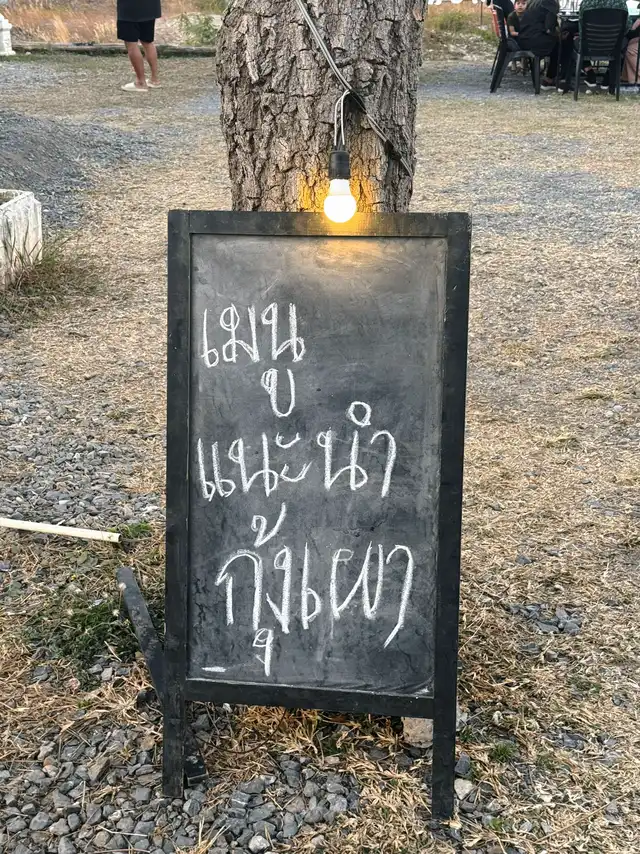 เมนู
แนะนำ
กุ้งเผา